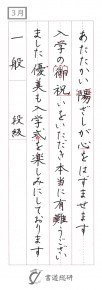 3月
あたたかい陽ざしが心をはずませます
入学の御祝いをいただき本当に有難うござい
ました優美も入学式を楽しみにしております
一般 段級
書道総研